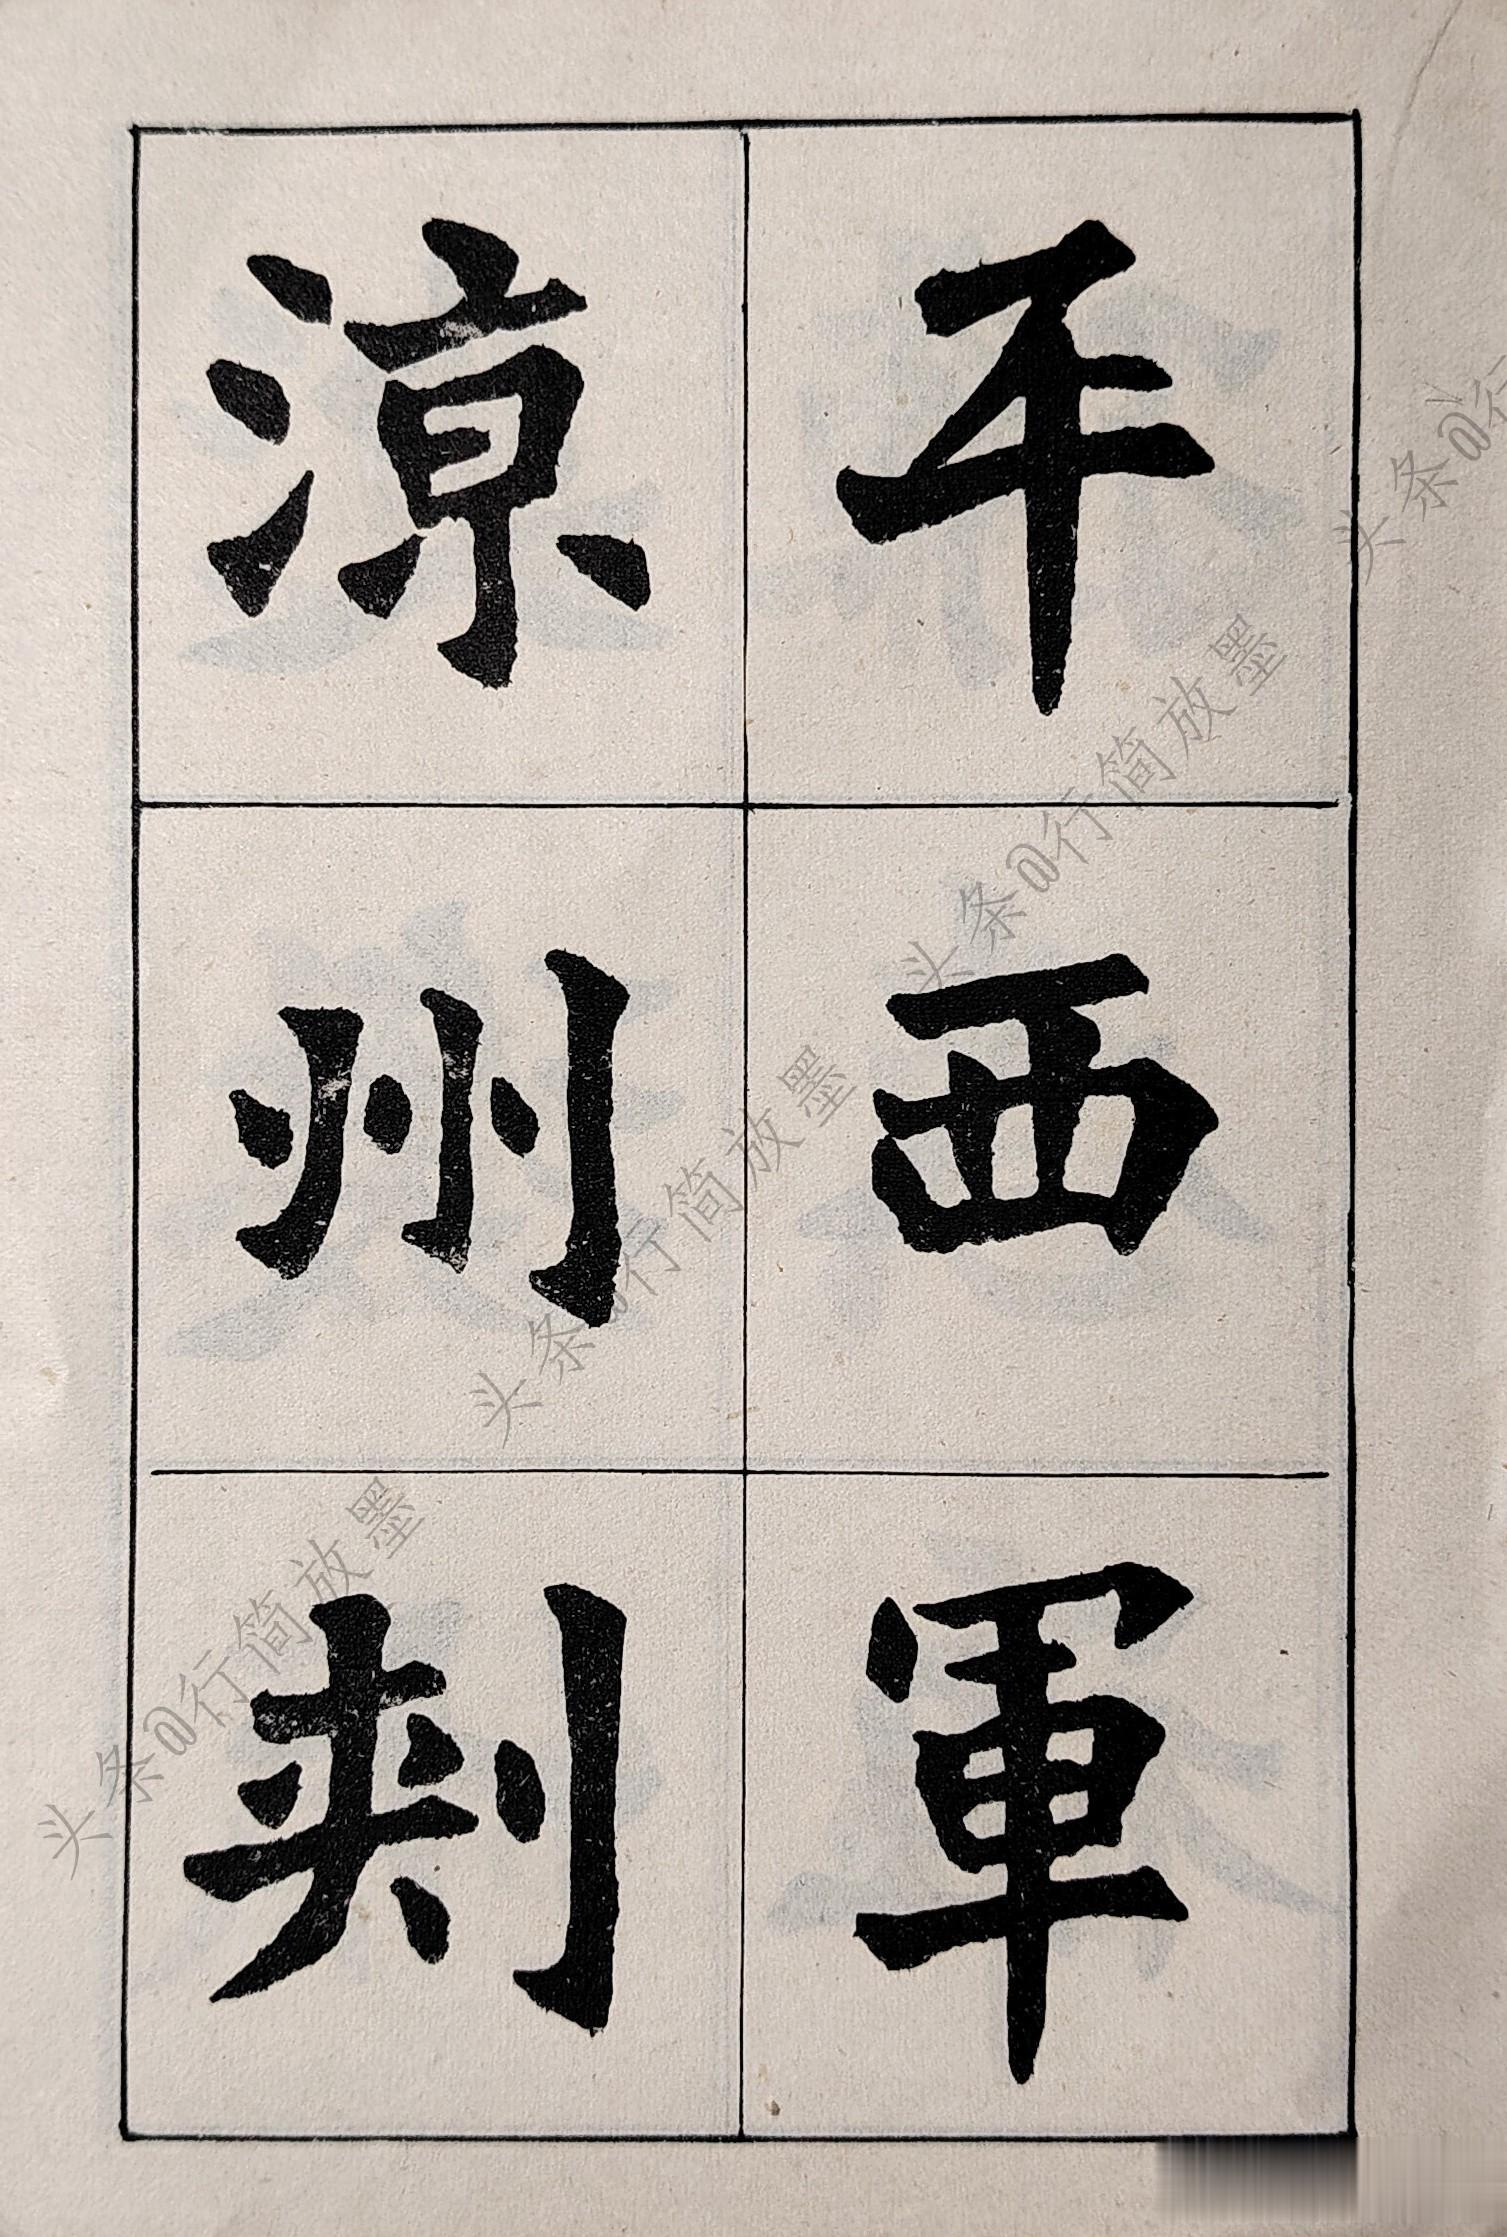 平西軍
涼州刾
头条@行
头条@行简放墨
头条@行简放墨
头条@行简放墨